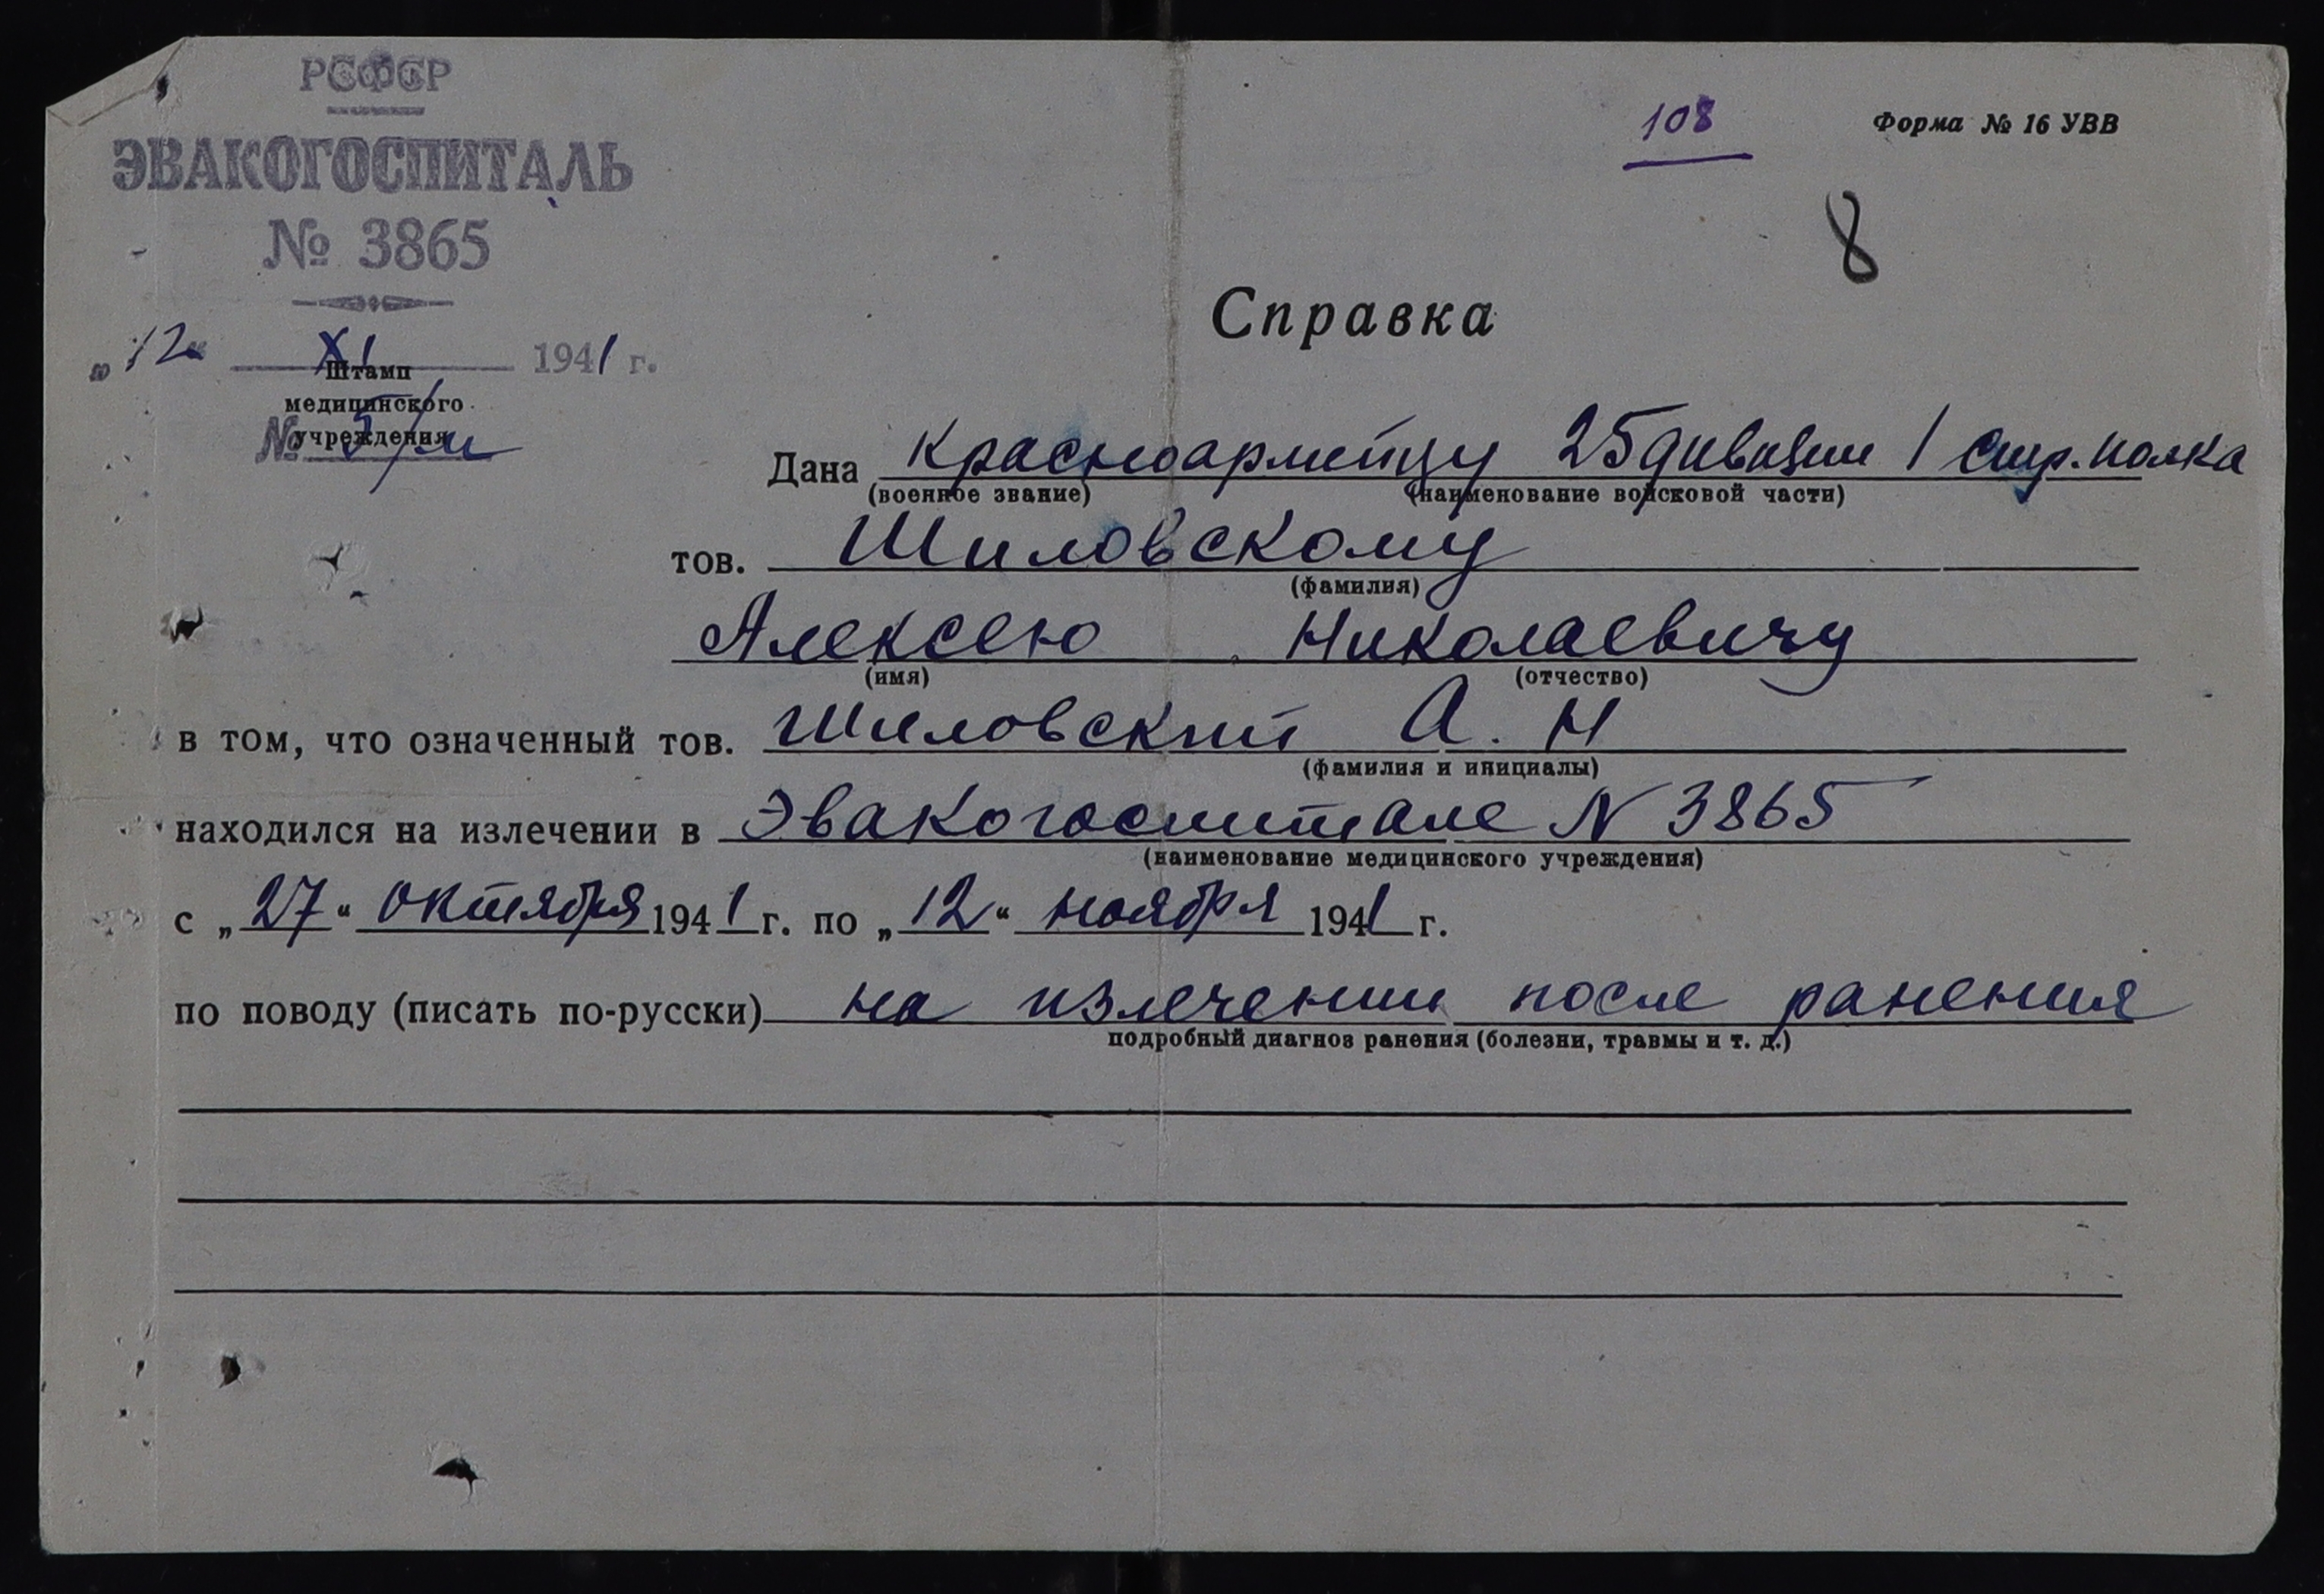 РСФСР
ЭВАКОГОСПИТАЛЬ
№ 3865
„12“ XI 1941 г.
Штамп
медицинского
учреждения
№ 5/и
108
Форма № 16 УВВ
8
Справка
Дана красноармейцу 25 дивизии 1 стр. полка
(военное звание) (наименование войсковой части)
тов. Шиловскому
(фамилия)
Алексею Николаевичу
(имя) (отчество)
в том, что означенный тов. Шиловский А. Н
(фамилия и инициалы)
находился на излечении в Эвакогоспитале N 3865
(наименование медицинского учреждения)
с „27“ октября 1941 г. по „12“ ноября 1941 г.
по поводу (писать по-русски) на излечении после ранения
подробный диагноз ранения (болезни, травмы и т. д.)